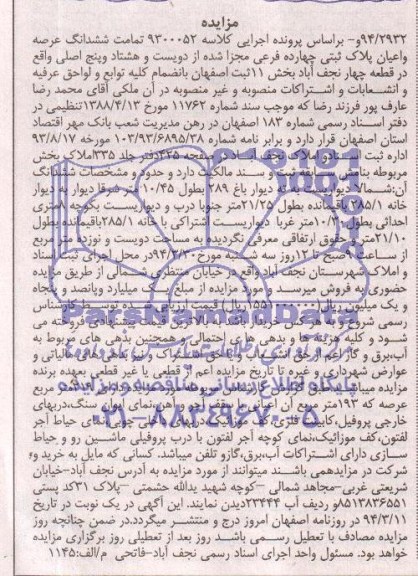 مزایده
۹۴/۲۹۳۲و- براساس پرونده اجرایی کلاسه ۹۳۰۰۰۵۲ تمامت ششدانگ عرصه
واعیان پلاک ثبتی چهارده فرعی مجزا شده از دویست و هشتاد وپنج اصلی واقع
در قطعه چهار نجف آباد بخش ۱۱ثبت اصفهان بانضمام کلیه توابع و لواحق عرفیه
و انشعابات و اشتراکات منصوبه و غیر منصوبه در آن ملکی آقای محمد رضا
عارف پور فرزند رضا که موجب سند شماره ۱۱۷۶۲ مورخ ۱۳۸۸/۴/۱۳تنظیمی در
دفتر اسناد رسمی شماره ۱۸۳ اصفهان در رهن مدیریت شعب بانک مهر اقتصاد
استان اصفهان قرار دارد و برابر نامه شماره ۱۰۳/۹۳/۶۸۹۵/۲۸ مورخه ۹۳/۸/۱۷
اداره ثبت اسناد واملاک نجف آباد در صفحه ۲۲۵دفتر جلد ۳۳۵املاک بخش
مربوطه بنام سابقه ثبت و سند مالکیت دارد و حدود و مشخصات ششدانگ
آن:شمالا دیواریست به دیوار باغ ۲۸۹ بطول ۱۰/۴۵متر شرقا دیوار به دیوار
خانه ۲۸۵/۱ باقیمانده بطول ۲۱/۲۵متر جنوبا درب و دیواریست بکوچه ۸متری
احداثی بطول ۱۰/۲۰متر غربا دیواریست اشتراکی با خانه ۲۸۵/۱باقیمانده بطول
۲۱/۱۰متر حقوق ارتفاقی معرفی نگردیده به مساحت دویست و نوزده متر مربع
از ساعت ۹صبح تا ۱۲روز سه شنبه مورخ در محل اجرای ثبت اسناد
و املاک شهرستان نجف آباد واقع در خیابان منتظری شمالی از طریق مزایده
حضوری به فروش میرسد و مورد مزایده از مبلغ یک میلیارد وپانصد و پنجاه
و یک میلیون ریال ریال) قیمت ارزیابی شده توسط کارشناس
رسمی شروع و به هر کس خریدار باشد به بالاترین قیمت پیشنهادی فروخته می
شود و کلیه هزینه ها و بدهی های احتمالی و همچنین بدهی های مربوط به
آب،برق و گاز اعم از حق انشعاب یا حق اشتراک و نیز بدهی های مالیاتی و
عوارض شهرداری و غیره تا تاریخ مزایده اعم از قطعی یا غیر قطعی بعهده برنده
مزایده میباشد
عرصه که ۱۹۳متر مربع آن اعیانی بنا سنگ،دربهای
خارجی پروفیل، حیاط آجر
لفتون،کف موزائیک،نمای کوچه آجر لفتون با درب پروفیلی ماشین رو و حیاط
سازی دارای اشتراکات آب،برق،گازو تلفن میباشد. کسانی که مایل به خرید و
شرکت در مزایدهمی باشند میتوانند از مورد مزایده به آدرس نجف آباد-خیابان
شریعتی غربی-مجاهد شمالی -کوچه شهید یدالله حشمتی -پلاک ۳۱کد پستی
۸۵۱۳۸۳۶۵۵۱و ردیف آب ۲۳۴۴۴دیدن نمایند. این آگهی در یک نوبت در تاریخ
۹۴/۳/۱۱ در روزنامه اصفهان امروز درج و منتشر میگردد.در ضمن چنانچه روز
مزایده مصادف با تعطیل رسمی باشد روز بعد از تعطیلی روز برگزاری مزایده
خواهد بود. مسئول واحد اجرای اسناد رسمی نجف آباد-فاتحی م/الف:۱۱۴۵
ParsNamadData
پایگاه اطلاع رسانی مناقصه و مزایده
۰۲۱-۸۸۳۴۹۶۷۰-۵